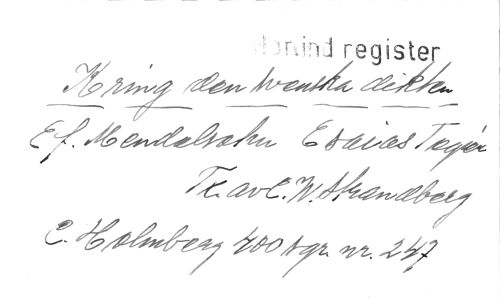 register
Kring den svenska dikten
Ef. Mendelsohn Esaias Tegnér
Tr. av C. W. Strandberg
C. Holmberg 400 sgr. nr. 247